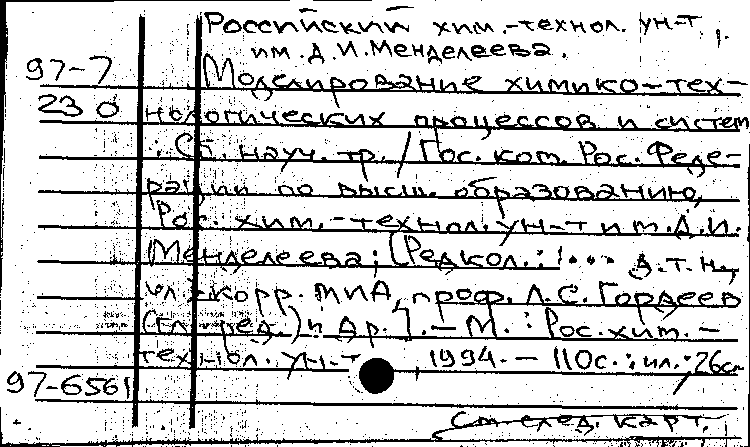 Российский хим.-технол. ун-т
им. Д. И. Менделеева.
97-7 Моделирование химико-тех-
230 нологических процессов и систем
: Сб. науч. тр. / Гос. ком. Рос. Феде-
рации по высш. образованию,
Рос. хим.-технол. ун-т им. Д. И.
Менделеева; [Редкол.: ... д. т. н.,
чл.-корр. МИА, проф. Л. С. Гордеев
(гл. ред.) и др.]. - М. : Рос. хим.-
технол. ун-т, 1994. - 110с. : ил. ; 26см
97-6561
См. след. карт.